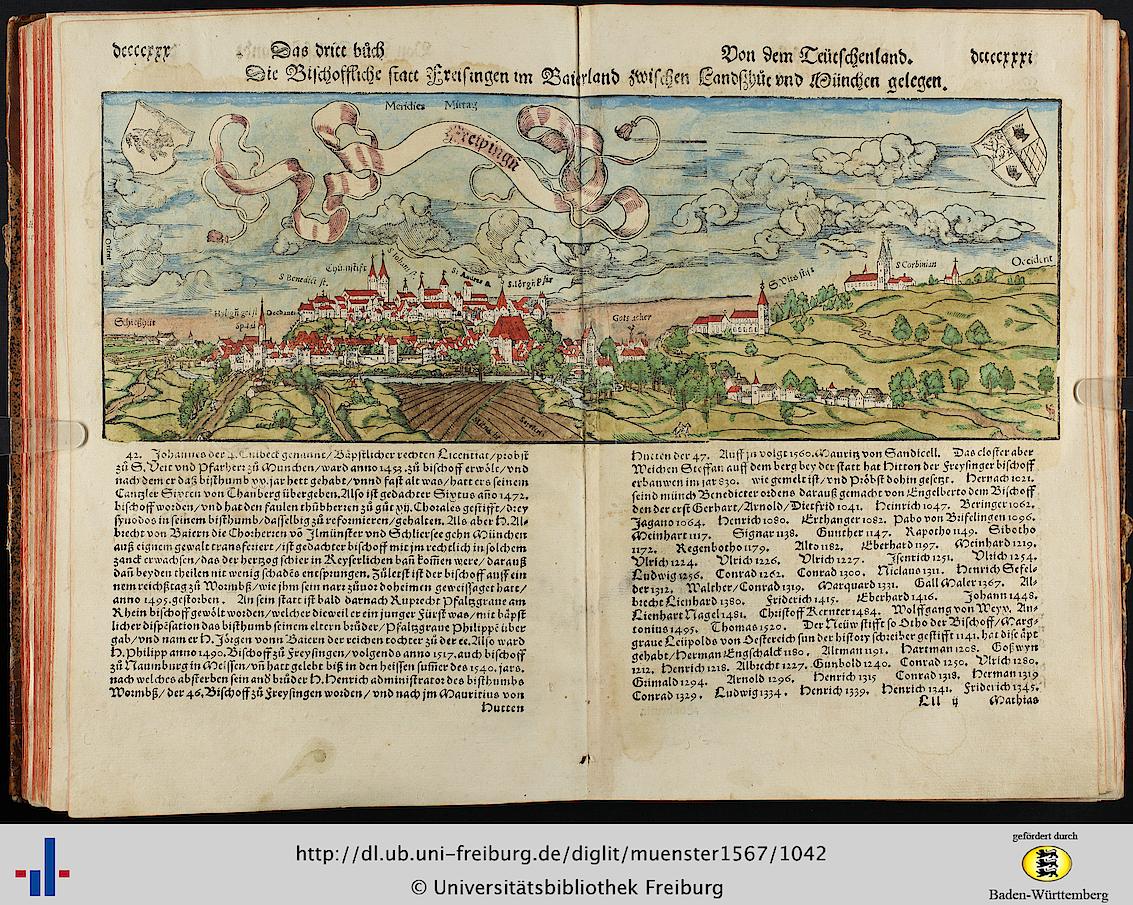 dccccxxx Das dritt bůch
Von dem Teütschenland. dccccxxxi
Die Bischoffliche statt Freisingen im Baierland zwischen Landßhůt vnd München gelegen.
Meridies Mittag
Freisingen
Orient
Occident
S. Corbinian
S. Vitus stifft
Thumstifft
S. Johans st.
S. Andres st.
S. Jörg Pfar
S. Benedict st.
Heylig geist
Spital
Dechanei
Schießhüt
Gots acker
42. Johannes der 4. Tulbeck genannt/ Bäpstlicher rechten Licentiat/ probst
zů S. Veit vnd Pfarherr zů München/ ward anno 1453. zů bischoff erwölt/ vnd
nach dem er daß bisthumb xx. jar hett gehabt/ vnnd fast alt was/ hatt ers seinem
Cantzler Sixten von Thanberg übergeben. Also ist gedachter Sixtus año 1472.
bischoff worden/ vnd hat den faulen thůmherren zů gůt xvj. Chorales gestifft/ drey
synodos in seinem bisthumb/ dasselbig zů reformieren/ gehalten. Als aber H. Al⸗
brecht von Baiern die Chorherren võ Ilmünster vnd Schliersee gehn München
auß eignem gewalt transferiert/ ist gedachter bischoff mit jm rechtlich in solchem
zanck erwachsen/ das der hertzog schier in Keyserlichen bañ kom̃en were/ darauß
dañ beyden theilen nit wenig schadēs entsprungen. Zůletst ist der bischoff auff ein
nem reichßtag zů Wormbß/ wie jhm sein narr zůuor doheimen geweissaget hatt/
anno 1495. gestorben. An sein statt ist bald darnach Růprecht Pfaltzgraue am
Rhein bischoff gewölt worden/ welcher dieweil er ein junger Fürst was/ mit bäpst
licher dispēsation das bisthumb seinem eltern brůder/ Pfaltzgraue Philippē über
gab/ vnd nam er H. Jörgen vonn Baiern der reichen tochter zů der ee. Also ward
H. Philipp anno 1490. Bischoff zů Freysingen/ volgends anno 1517. auch bischoff
zů Naumburg in Meissen/ vñ hatt gelebt biß in den heissen sum̃er des 1540. jars.
nach welches absterben sein and brůder H. Henrich administrator des bisthumbs
Wormbß/ der 46. Bischoff zů Freysingen worden/ vnd nach jm Mauritius von
Hutten
Hutten der 47. Auff jn volgt 1560. Mauritz von Sandicell. Das closter aber
Weichen Steffan auff dem berg bey der statt hat Hitton der Freysinger bischoff
erbauwen im jar 830. wie gemelt ist/ vnd Pröbst dohin gesetzt. Hernach 1021.
seind münch Benedicter ordens darauß gemacht von Engelberto dem Bischoff
den der erst Gerhart/ Arnold/ Dietfrid 1041. Heinrich 1047. Beringer 1062.
Jagano 1064. Henrich 1080. Erthanger 1082. Pabo von Büfelingen 1096.
Meinhart 1117. Signar 1138. Gunther 1147. Rapotho 1149. Sibotho
1172. Regenbotho 1179. Alto 1182. Eberhard 1197. Meinhard 1219.
Vlrich 1224. Vlrich 1226. Vlrich 1227. Isenrich 1251. Vlrich 1254.
Ludwig 1256. Conrad 1262. Conrad 1300. Niclaus 1311. Henrich Sefel⸗
der 1312. Walther/ Conrad 1319. Marquard 1331. Gall Maler 1367. Al⸗
brecht Lienhard 1380. Friderich 1415. Eberhard 1416. Johann 1448.
Lienhart Nagel 1481. Christoff Kernter 1484. Wolffgang von Weyx. An⸗
tonius 1495. Thomas 1520. Der Neüw stifft so Otho der Bischoff/ Marg⸗
graue Leüpolds von Oestereich sun der history schreiber gestifft 1141. hat dise äpt
gehabt/ Herman Engschalck 1180. Altman 1191. Hartman 1208. Goßwyn
1212. Henrich 1218. Albrecht 1227. Gunbold 1240. Conrad 1250. Vlrich 1280.
Grimald 1294. Arnold 1296. Henrich 1315 Conrad 1318. Herman 1319
Conrad 1329. Ludwig 1334. Henrich 1339. Henrich 1341. Friderich 1345.
LLl ij Mathias
http://dl.ub.uni-freiburg.de/diglit/muenster1567/1042
© Universitätsbibliothek Freiburg
gefördert durch
Baden-Württemberg